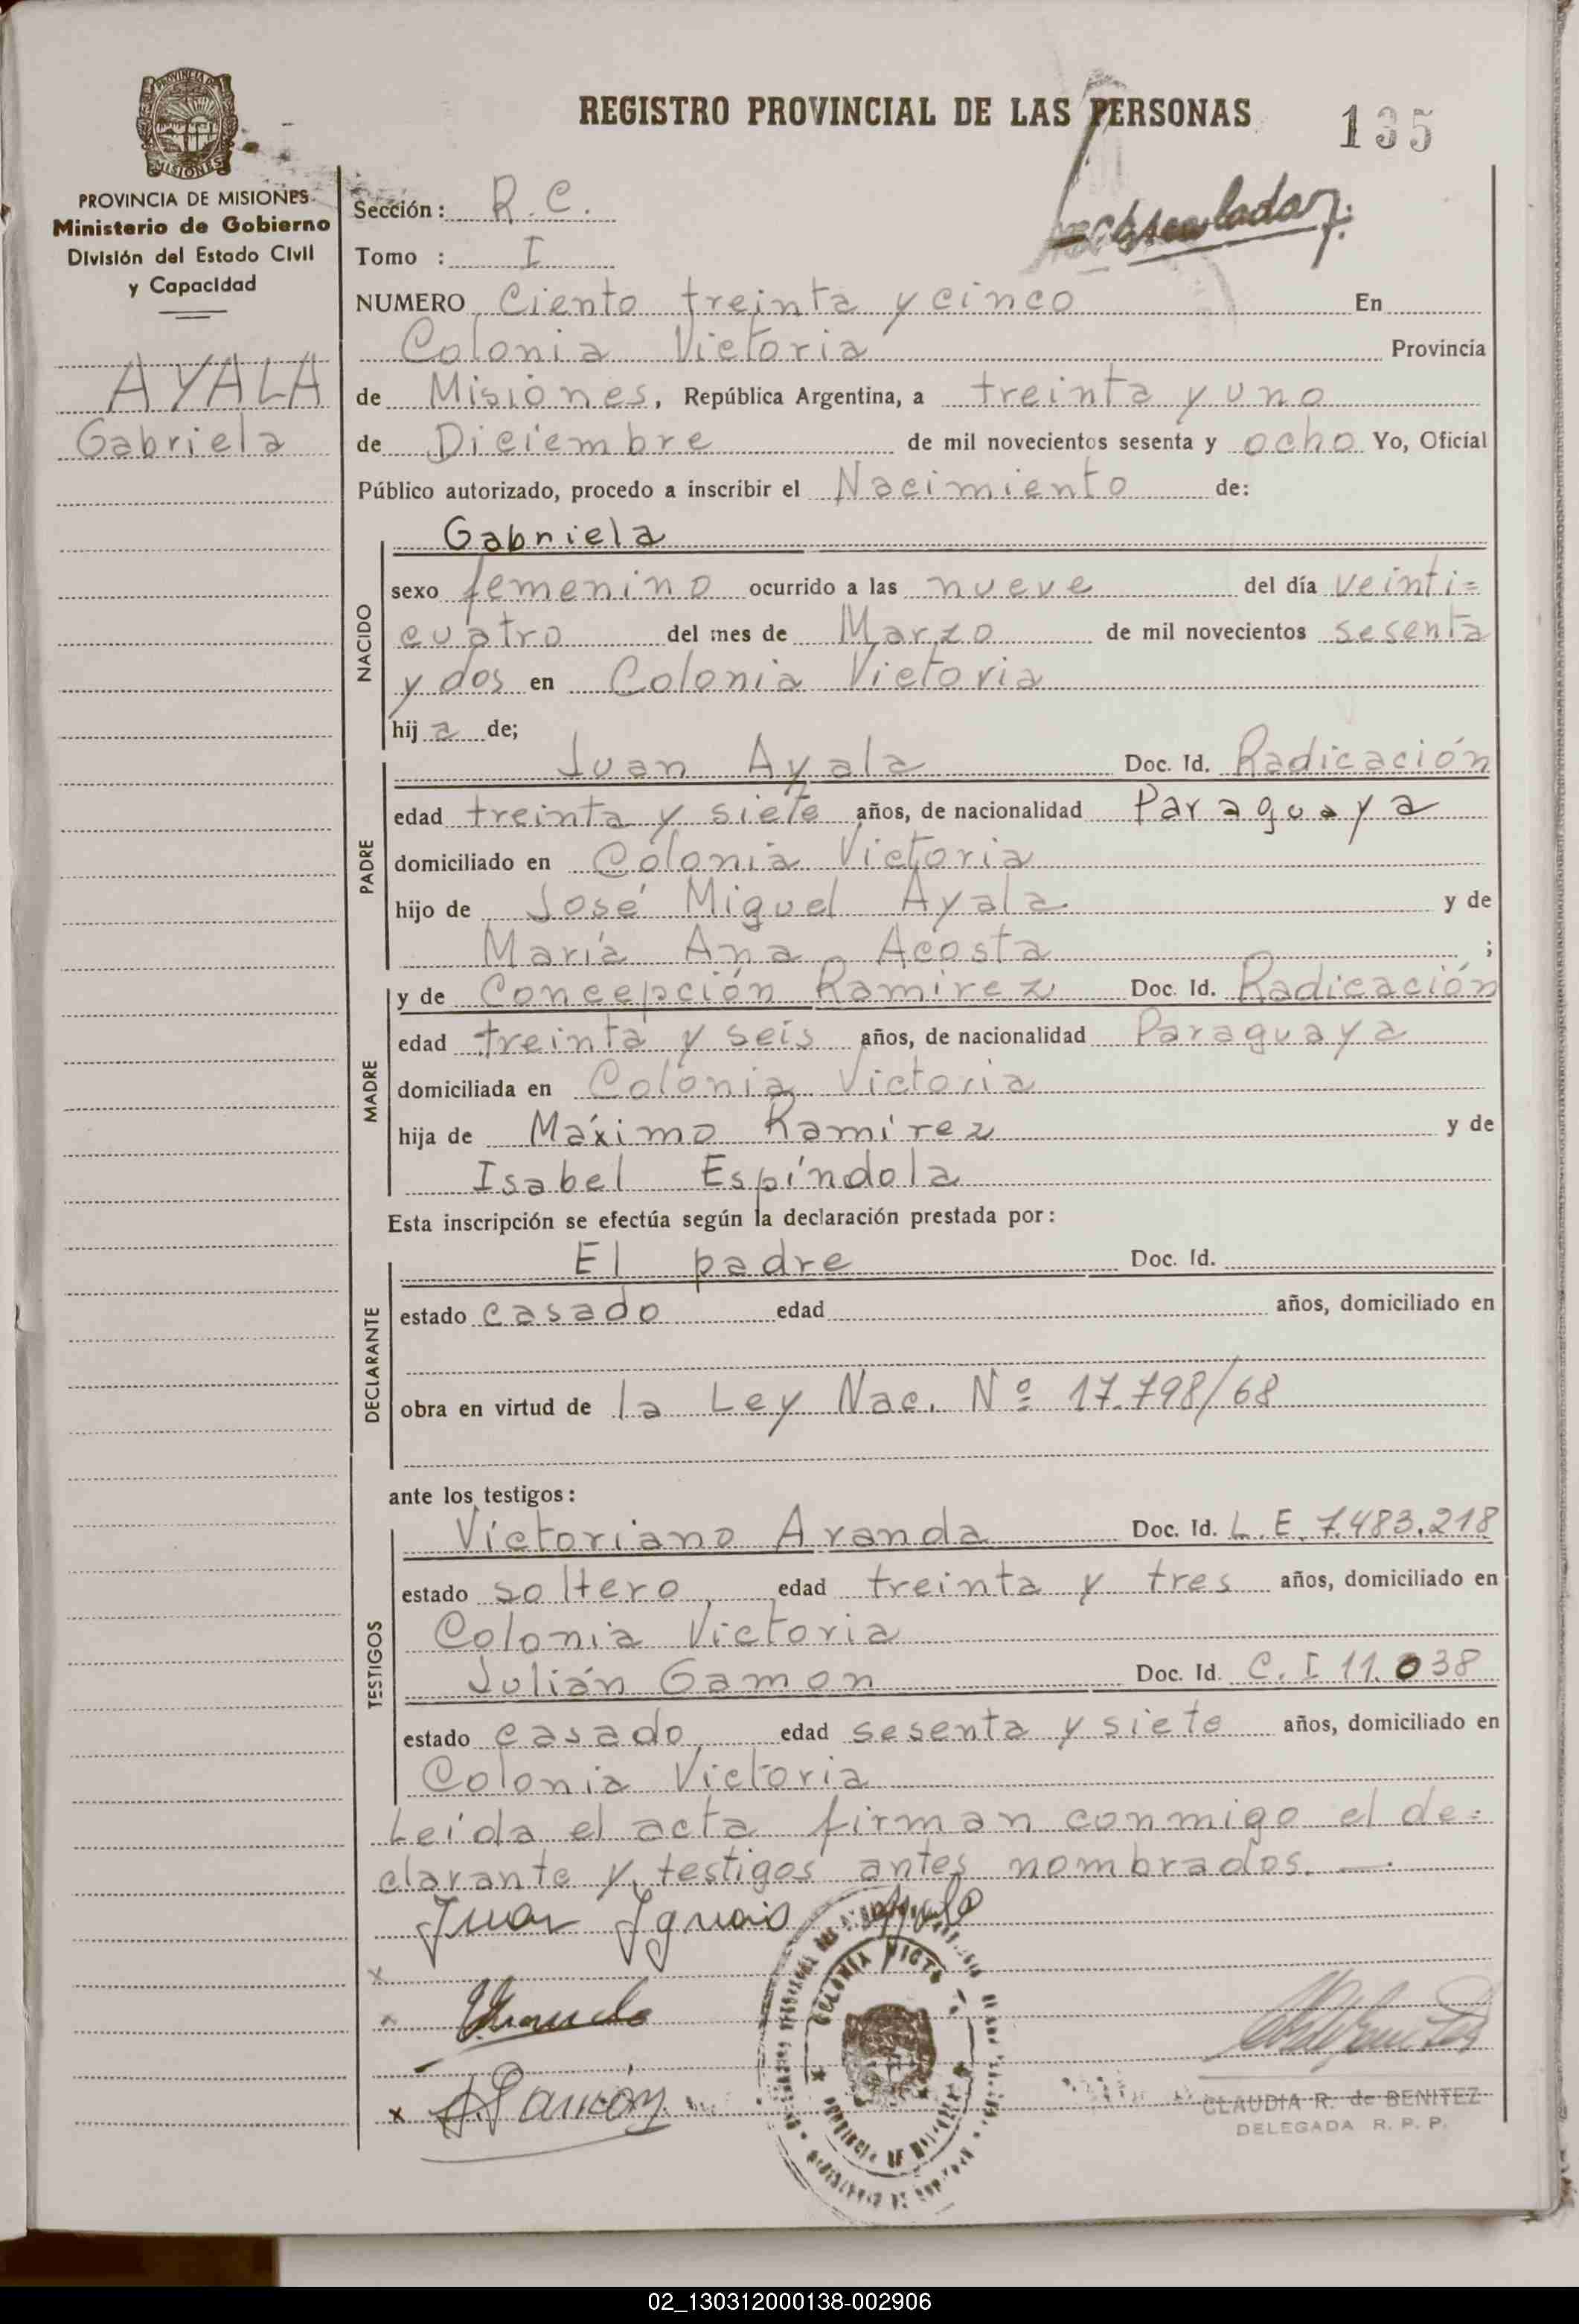 REGISTRO PROVINCIAL DE LAS PERSONAS
135
MISIONES
PROVINCIA DE MISIONES
Ministerio de Gobierno
División del Estado Civil
y Capacidad
AYALA
Gabriela
Sección: R.C.
Tomo : I
NUMERO Ciento treinta y cinco En
Colonia Victoria Provincia
de Misiones, República Argentina, a treinta y uno
de Diciembre de mil novecientos sesenta y ocho Yo, Oficial
Público autorizado, procedo a inscribir el Nacimiento de:
NACIDO
Gabriela
sexo femenino ocurrido a las nueve del día veinti=
cuatro del mes de Marzo de mil novecientos sesenta
y dos en Colonia Victoria
hij a de;
PADRE
Juan Ayala Doc. Id. Radicación
edad treinta y siete años, de nacionalidad Paraguaya
domiciliado en Colonia Victoria
hijo de José Miguel Ayala y de
María Ana Acosta ;
MADRE
y de Concepción Ramirez Doc. Id. Radicación
edad treinta y seis años, de nacionalidad Paraguaya
domiciliada en Colonia Victoria
hija de Máximo Ramírez y de
Isabel Espíndola
Esta inscripción se efectúa según la declaración prestada por:
DECLARANTE
El padre Doc. Id.
estado casado edad años, domiciliado en
obra en virtud de la Ley Nac. Nº 17.798/68
ante los testigos:
TESTIGOS
Victoriano Aranda Doc. Id. L.E. 7.483.218
estado soltero edad treinta y tres años, domiciliado en
Colonia Victoria
Julián Gamon Doc. Id. C.I 11.038
estado casado edad sesenta y siete años, domiciliado en
Colonia Victoria
Leída el acta firman conmigo el de=
clarante y testigos antes nombrados. —.
Juan
x
x
COLONIA VICTO
CLAUDIA R. de BENITEZ
DELEGADA R. P. P.
02_130312000138-002906